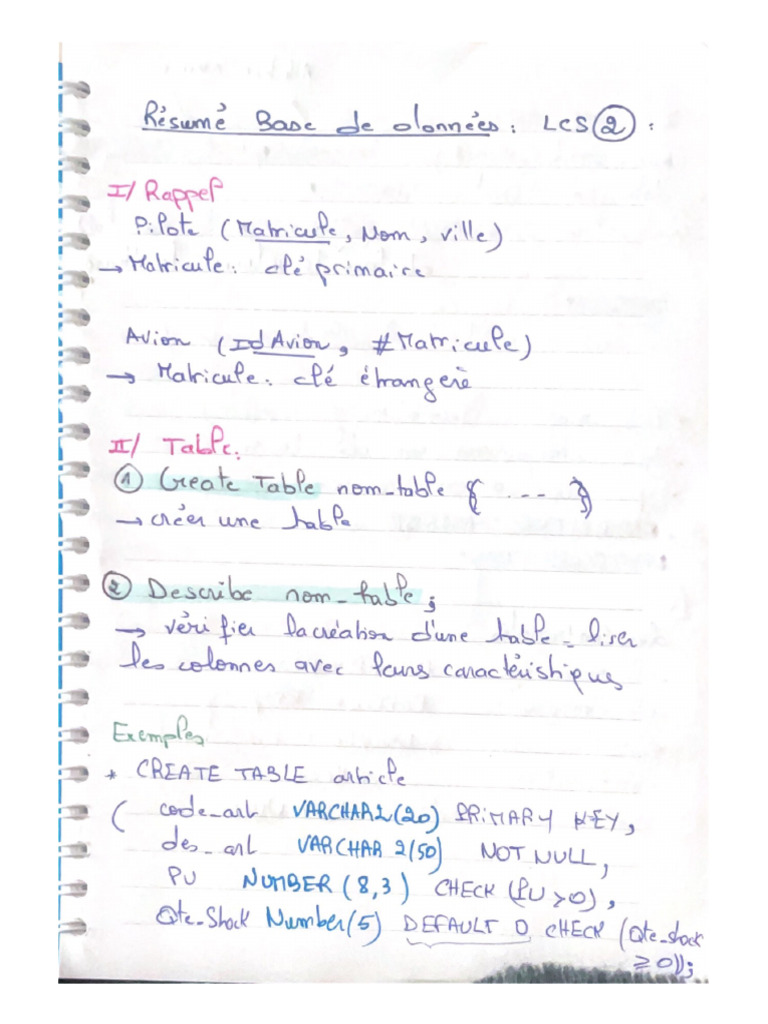 Résumé Base de données : LCS ② :
I/ Rappel
Pilote (Matricule, Nom, ville)
→ Matricule : clé primaire
Avion (IdAvion, #Matricule)
→ Matricule : clé étrangerè
II/ Table :
① Create Table nom_table { .... }
→ créer une table
② Describe nom_table ;
→ vérifier la création d'une table _ liser
les colonnes avec leurs caractéristiques
Exemples
* CREATE TABLE article
( code_art VARCHAR2(20) PRIMARY KEY,
des_art VARCHAR2(50) NOT NULL,
PU NUMBER (8,3) CHECK (PU >0),
Qte_Stock Number(5) DEFAULT 0 CHECK (Qte_stock
≥ 0));